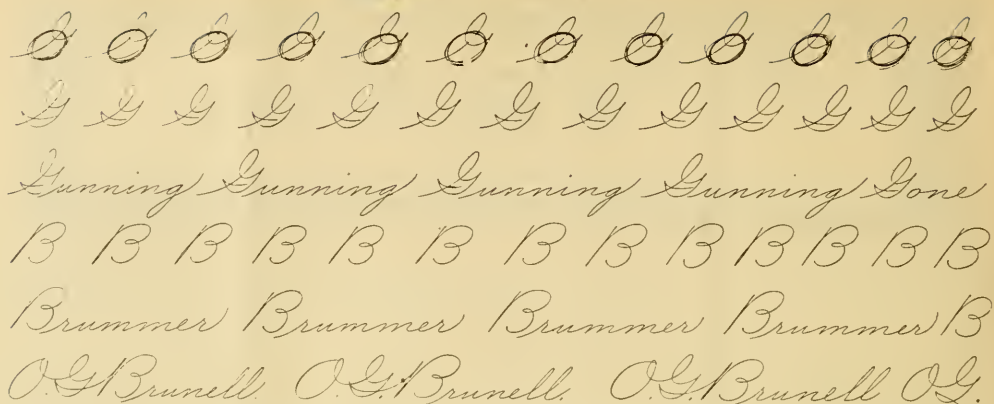 G G G G G G G G G G G G G
Gunning Gunning Gunning Gunning Gone
B B B B B B B B B B B B B
Brummer Brummer Brummer Brummer B
O.G.Brunell. O.G.Brunell. O.G.Brunell O.G.